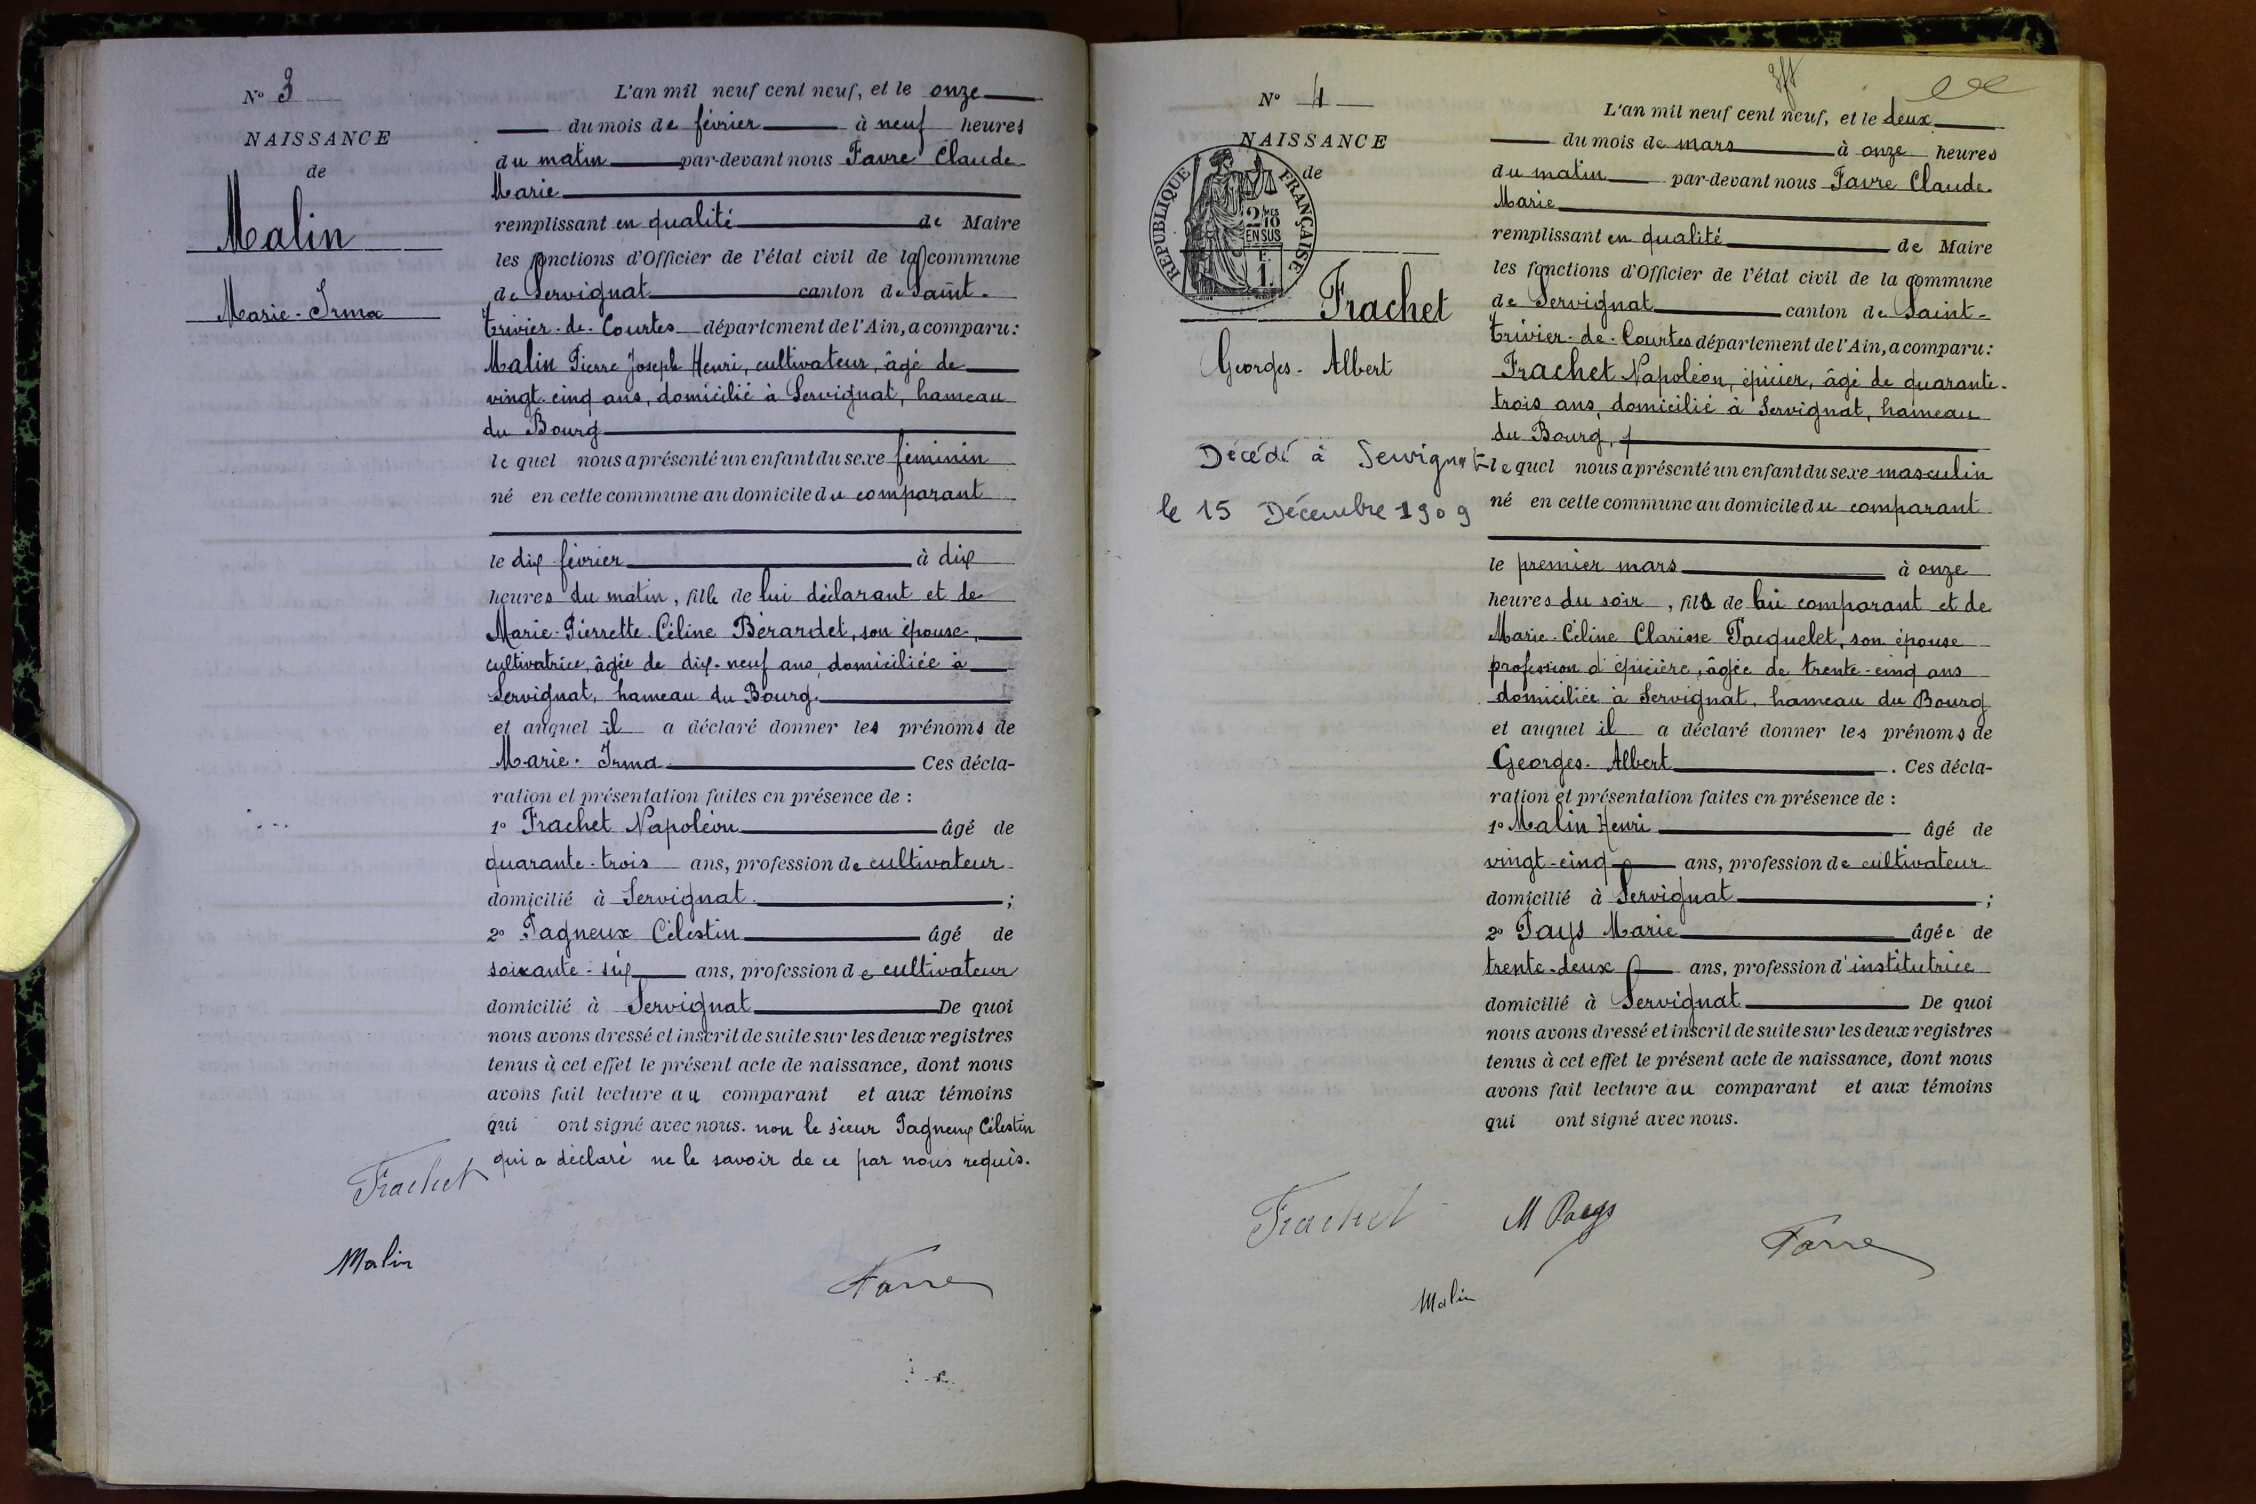 N° 3
NAISSANCE
de
Malin
Marie-Irma
L'an mil neuf cent neuf, et le onze
du mois de février à neuf heures
du matin par-devant nous Favre Claude
Marie
remplissant en qualité de Maire
les fonctions d'Officier de l'état civil de la commune
de Servignat canton de Saint-
Trivier-de-Courtes département de l'Ain, a comparu:
Malin Pierre Joseph Henri, cultivateur, âgé de
vingt-cinq ans, domicilié à Servignat, hameau
du Bourg
le quel nous a présenté un enfant du sexe féminin
né en cette commune au domicile du comparant
le dix février à dix
heures du matin, fille de lui déclarant et de
Marie-Pierrette Céline Bérardet, son épouse,
cultivatrice, âgée de dix-neuf ans, domiciliée à
Servignat, hameau du Bourg.
et auquel il a déclaré donner les prénoms de
Marie-Irma Ces décla-
ration et présentation faites en présence de :
1° Frachet Napoléon âgé de
quarante-trois ans, profession de cultivateur
domicilié à Servignat ;
2° Pagneux Célestin âgé de
soixante-six ans, profession de cultivateur
domicilié à Servignat De quoi
nous avons dressé et inscrit de suite sur les deux registres
tenus à cet effet le présent acte de naissance, dont nous
avons fait lecture au comparant et aux témoins
qui ont signé avec nous. non le sieur Pagneux Célestin
qui a déclaré ne le savoir de ce par nous requis.
Frachet
Malin
Favre
N° 4
NAISSANCE
de
RÉPUBLIQUE FRANÇAISE
2/10 MES
EN SUS
F.
1.
Frachet
Georges-Albert
Décédé à Servignat
le 15 Décembre 1909
L'an mil neuf cent neuf, et le deux
du mois de mars à onze heures
du matin par-devant nous Favre Claude
Marie
remplissant en qualité de Maire
les fonctions d'Officier de l'état civil de la commune
de Servignat canton de Saint-
Trivier-de-Courtes département de l'Ain, a comparu:
Frachet Napoléon, épicier, âgé de quarante-
trois ans, domicilié à Servignat, hameau
du Bourg,
le quel nous a présenté un enfant du sexe masculin
né en cette commune au domicile du comparant
le premier mars à onze
heures du soir, fils de lui comparant et de
Marie-Céline Clarisse Pacquelet, son épouse
profession d'épicière, âgée de trente-cinq ans
domiciliée à Servignat, hameau du Bourg
et auquel il a déclaré donner les prénoms de
Georges-Albert. Ces décla-
ration et présentation faites en présence de :
1° Malin Henri âgé de
vingt-cinq ans, profession de cultivateur
domicilié à Servignat ;
2° Pays Marie âgée de
trente-deux ans, profession d'institutrice
domicilié à Servignat De quoi
nous avons dressé et inscrit de suite sur les deux registres
tenus à cet effet le présent acte de naissance, dont nous
avons fait lecture au comparant et aux témoins
qui ont signé avec nous.
Frachet
M Pays
Favre
Malin